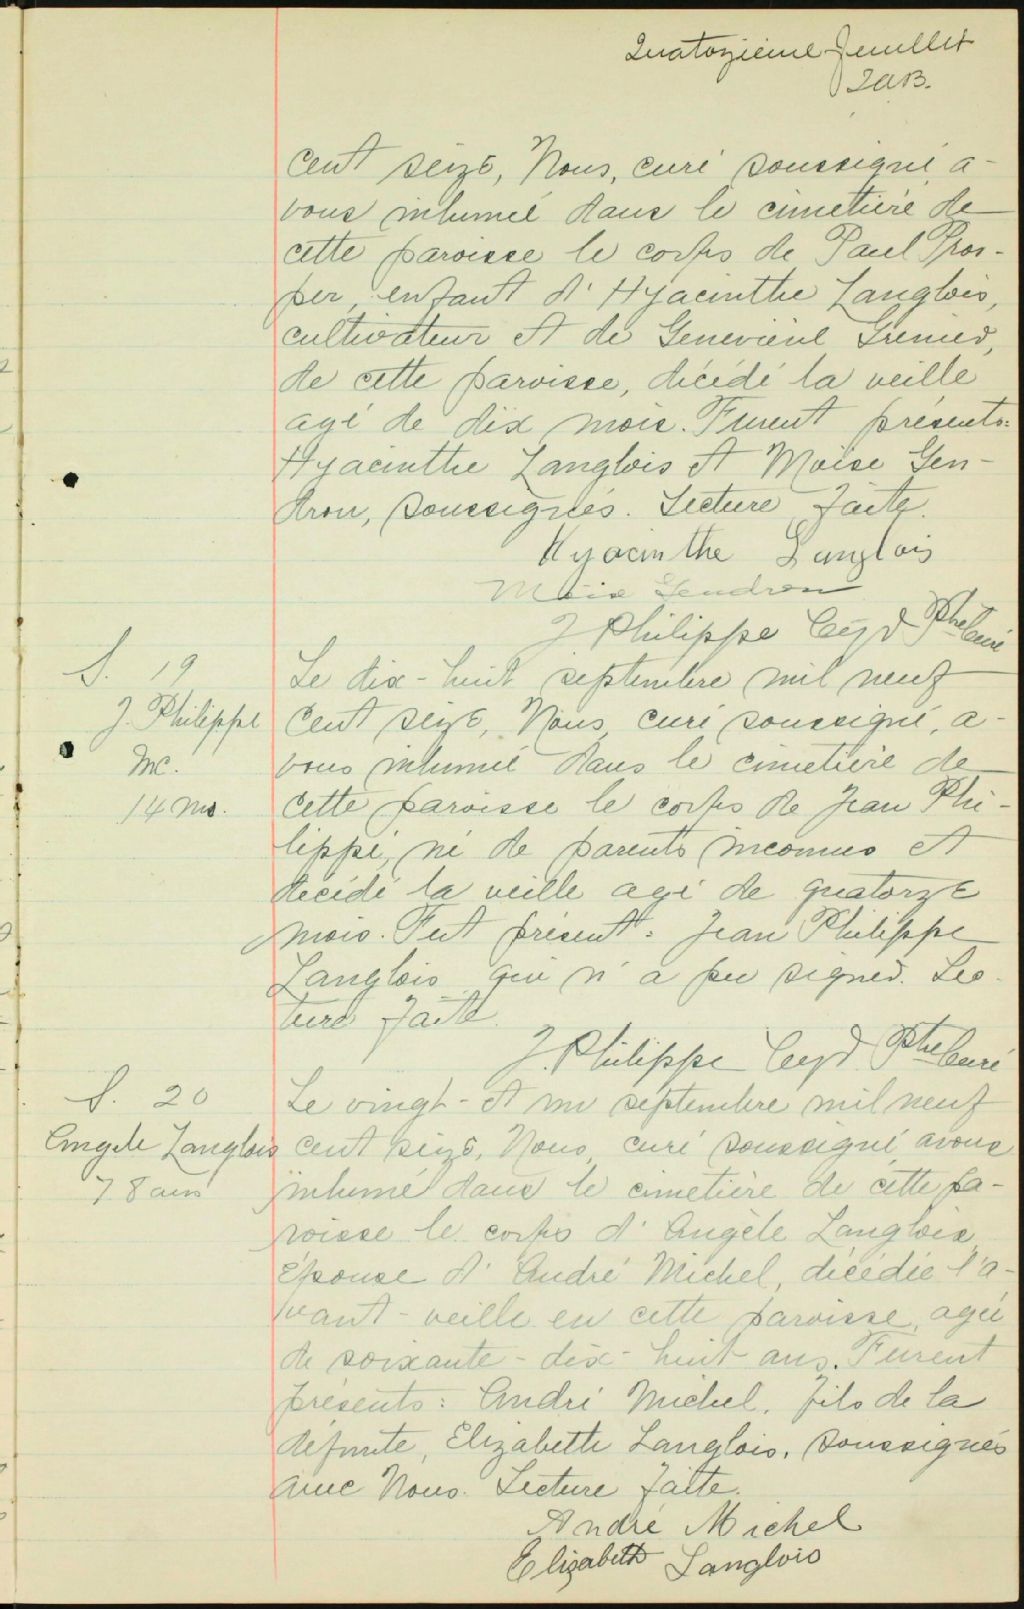 Quatorzième feuillet
J.A.B.
cent seize, Nous, curé soussigné a-
vons inhumé dans le cimetière de
cette paroisse le corps de Paul Pros-
per, enfant d'Hyacinthe Langlois,
cultivateur et de Geneviève Grenier,
de cette paroisse, décédé la veille
agé de dix mois. Furent présents:
Hyacinthe Langlois et Moïse Gen-
dron, soussignés. Lecture faite.
Hyacinthe Langlois
Moïse Gendron
J Philippe Cyr Ptre Curé
S. 19
J. Philippe
Inc.
14 ms.
Le dix-huit septembre mil neuf
cent seize, Nous, curé soussigné, a-
vons inhumé dans le cimetière de
cette paroisse le corps de Jean Phi-
lippe, né de parents inconnus et
décédé la veille agé de quatorze
mois. Fut présent: Jean Philippe
Langlois qui n'a pu signer. Lec-
ture faite.
J. Philippe Cyr Ptre Curé
S. 20
Angèle Langlois
78 ans
Le vingt-et un septembre mil neuf
cent seize, Nous, curé soussigné avons
inhumé dans le cimetière de cette pa-
roisse le corps d'Angèle Langlois,
épouse d'André Michel, décédée l'a-
vant-veille en cette paroisse, agée
de soixante-dix-huit ans. Furent
présents: André Michel, fils de la
défunte, Elizabeth Langlois, soussignés
avec Nous. Lecture faite.
André Michel
Elizabeth Langlois